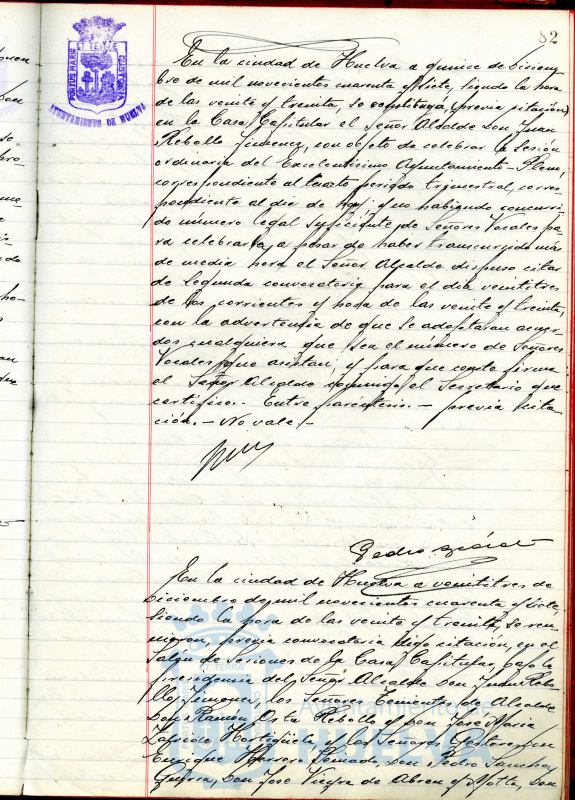 82
PORTUS MARIS ET TERRE CUSTODIA
AYUNTAMIENTO DE HUELVA
En la ciudad de Huelva a quince de diciem-
bre de mil novecientos cuarenta y siete, siendo la hora
de las veinte y treinta, se constituya (previa citación)
en la Casa Capitular el Señor Alcalde Don Juan
Rebollo Jimenez, con objeto de celebrar la Sesión
ordinaria del Excelentísimo Ayuntamiento Pleno,
correspondiente al cuarto periodo trimestral, corres-
pondiente al día de hoy; y no habiendo concurri-
do número legal suficiente de Señores Vocales pa-
ra celebrarla, a pesar de haber transcurrido más
de media hora el Señor Alcalde dispuso citar
de segunda convocatoria para el día veintitres
de los corrientes y hora de las veinte y treinta,
con la advertencia de que se adoptaran acuer-
dos cualquiera que sea el número de Señores
Vocales que asistan; y para que conste firma
el Señor Alcalde conmigo el Secretario que
certifico.- Entre parentesis.- previa cita-
ción.- No vale/-
Pedro
En la ciudad de Huelva a veintitres de
Diciembre de mil novecientos cuarenta y siete,
siendo la hora de las veinte y treinta, se reu-
nieron, previa convocatoria citación, en el
Salón de Sesiones de la Casa Capitular, bajo la
presidencia del Señor Alcalde Don Juan Rebo-
llo Jimenez, los Señores Tenientes de Alcalde
Don Ramón Orta Rebollo y Don José María
Zafrido y los Señores Gestores Don
Enrique Herrero Don Pedro Sanchez
Guerra, Don José Vieyra de Abreu y Motta, Don
Ayuntamiento de
HUELVA